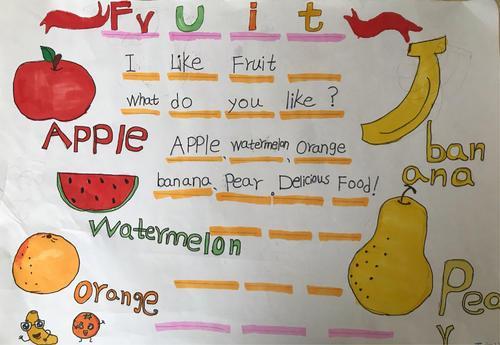 Fruit
I Like Fruit
what do you like ?
APPLE
APPle、watermelon、Orange
banana、Pear。Delicious Food!
ban
ana
Watermelon
Orange
Pea
r